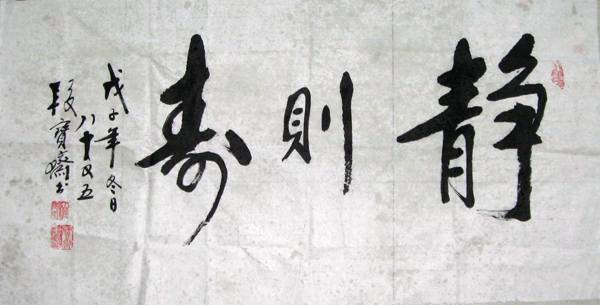 静则寿
戊子年冬日
八十又五
段寶齋书